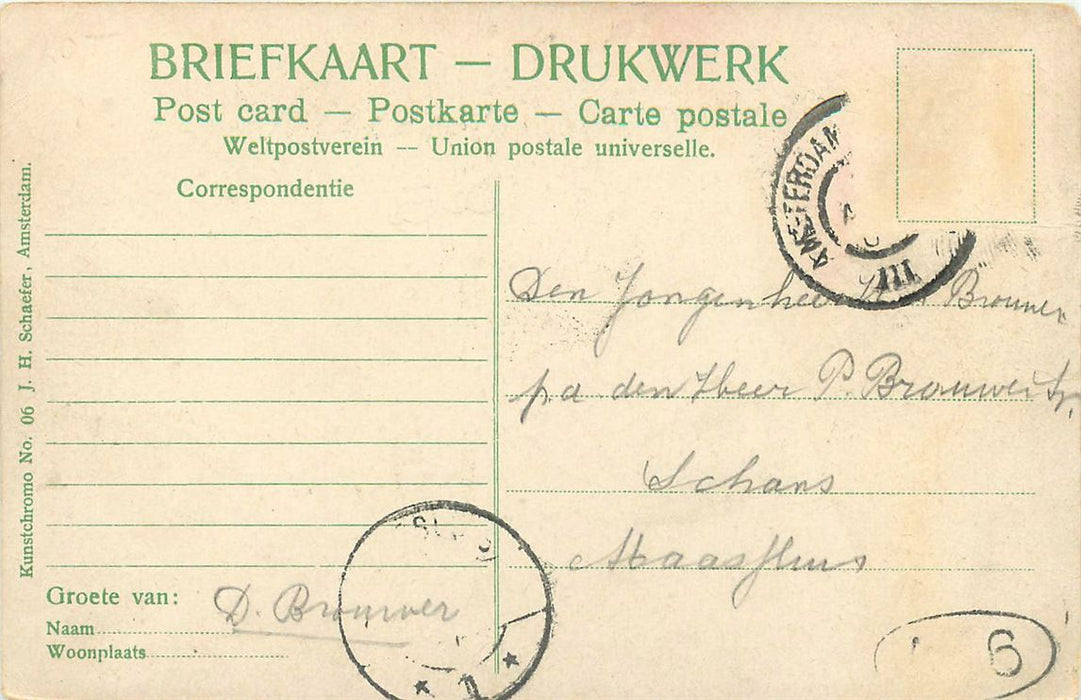 BRIEFKAART — DRUKWERK
Post card — Postkarte — Carte postale
Weltpostverein — Union postale universelle.
Correspondentie
AMSTERDAM
III
Den Jongenheer Brouwer
p a den Heer P. Brouwer
Schans
Maassluis
Groete van: D. Brouwer
Naam
Woonplaats
1
6
Kunstchromo No. 06 J. H. Schaefer, Amsterdam.